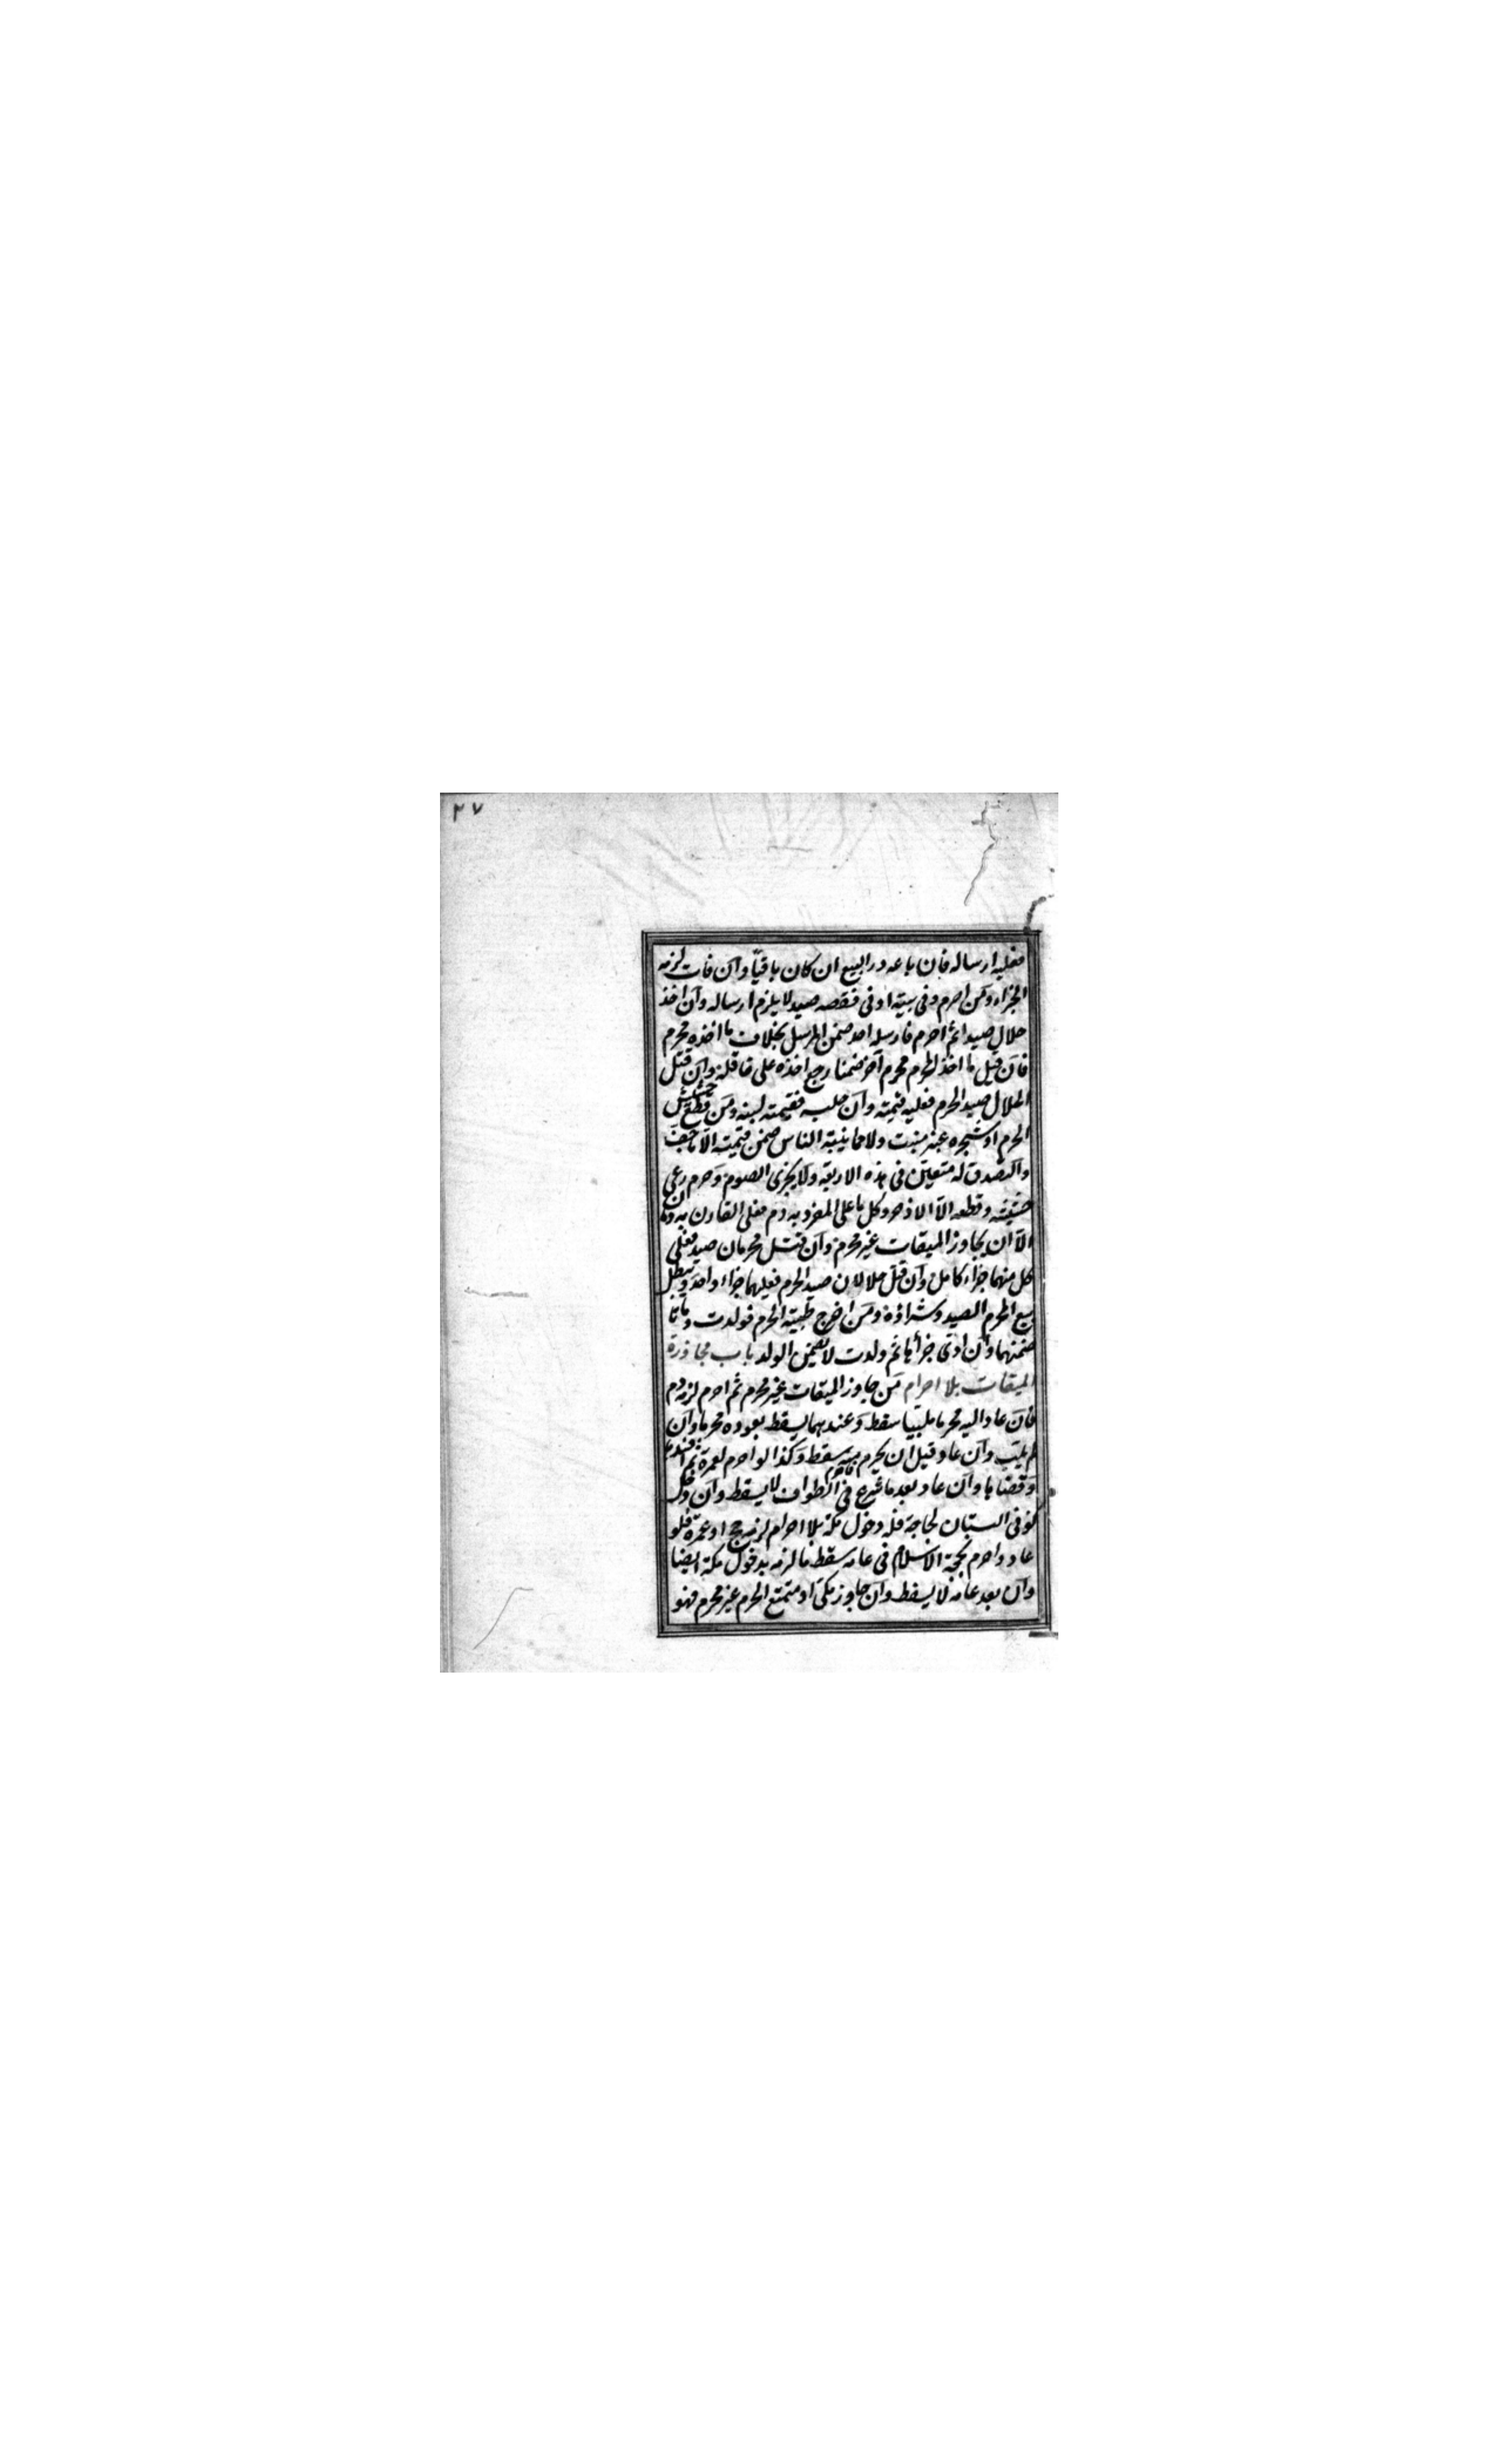 ٢٧
فعليه ارساله فان باعه رد البيع ان كان باقيا وان فات لزمه
الجزاء ومن احرم وفى بيته او فى قفصه صيد لا يلزم ارساله وان اخذ
حلال صيدا ثم احرم فارسله احد ضمن المرسل بخلاف ما اخذه محرم
فان قتل ما اخذ المحرم محرم آخر ضمنا ورجع اخذه على قاتله وان قتل
الحلال صيد الحرم فعليه قيمته وان حلبه فقيمته لبنه ومن قطع حشيش
الحرم او شجره غير منبت ولا مما ينبته الناس ضمن قيمته الا ما جف
والتصدق له متعين فى هذه الاربعة ولا يجزى الصوم وحرم رعى
حشيشه وقطعه الا الاذخر وكل ما على المفرد به دم فعلى القارن به دمان
الا ان يجاوز الميقات غير محرم وان قتل محرمان صيدا فعلى
كل منهما جزاء كامل وان قتل حلالان صيد الحرم فعليهما جزاء واحد ويبطل
بيع المحرم الصيد وشراؤه ومن اخرج ظبية الحرم فولدت وماتا
ضمنهما وان ادى جزأها ثم ولدت لا يضمن الولد باب مجاوزة
الميقات بلا احرام من جاوز الميقات غير محرم ثم احرم لزمه دم
فان عاد اليه محرما ملبيا سقط وعندهما يسقط بعوده محرما وان
لم يلب وان عاد قبل ان يحرم فاحرم منه سقط وكذا لو احرم لعمرة ثم افسدها
وقضاها وان عاد بعد ما شرع فى الطواف لا يسقط وان دخل
كوفى البستان لحاجة فله دخول مكة بلا احرام لزمه حج او عمرة فلو
عاد واحرم بحجة الاسلام فى عامه سقط ما لزمه بدخول مكة ايضا
وان بعد عامه لا يسقط وان جاوز مكى او متمتع الحرم غير محرم فهو